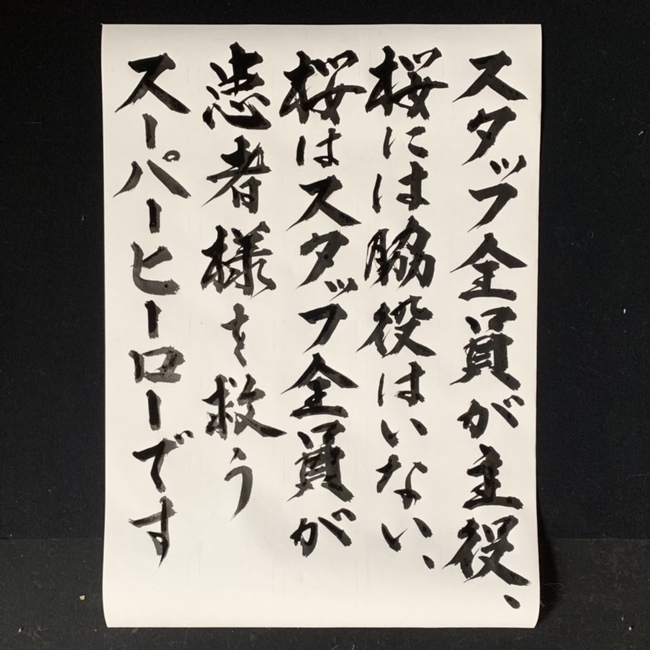 スタッフ全員が主役、
桜には脇役はいない、
桜はスタッフ全員が
患者様を救う
スーパーヒーローです